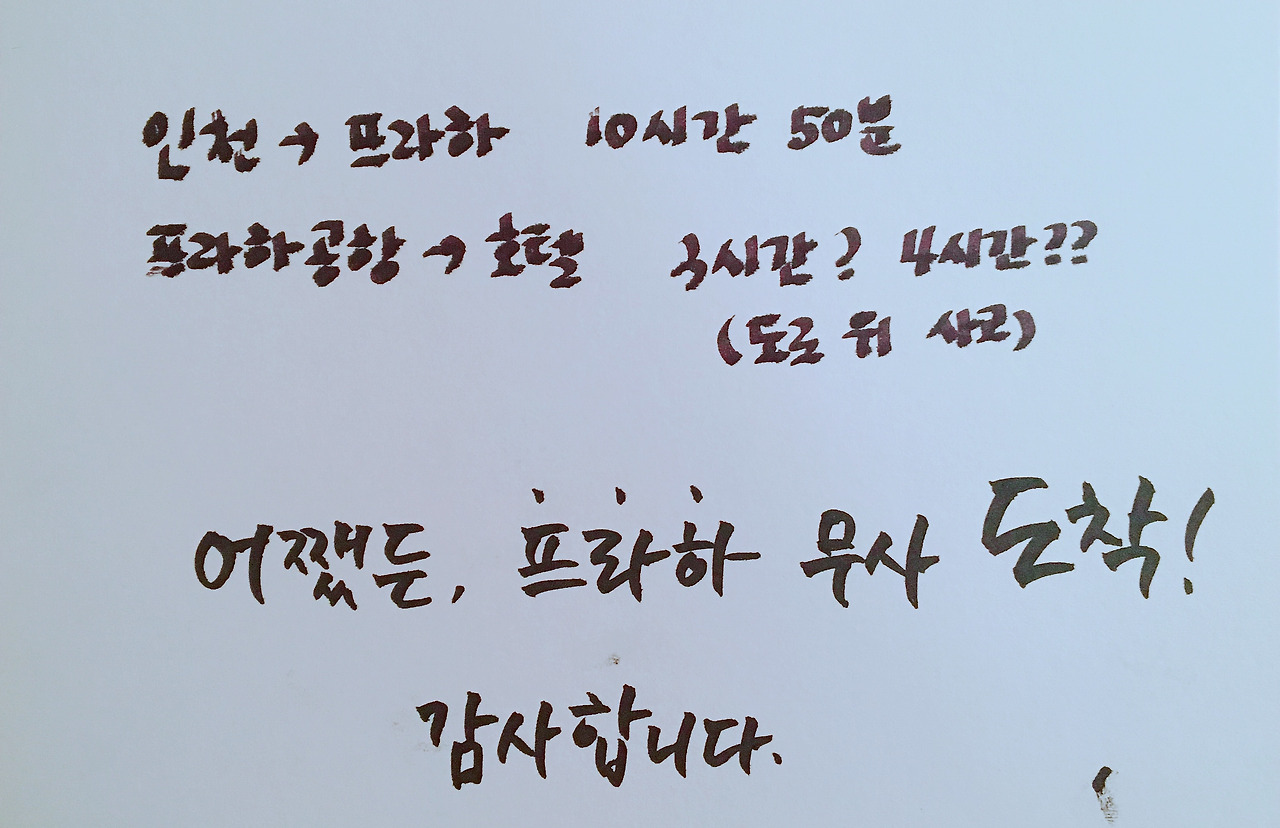 인천 → 프라하 10시간 50분
프라하공항 → 호텔 3시간? 4시간??
(도로 위 사고)
어쨌든, 프라하 무사 도착!
감사합니다.